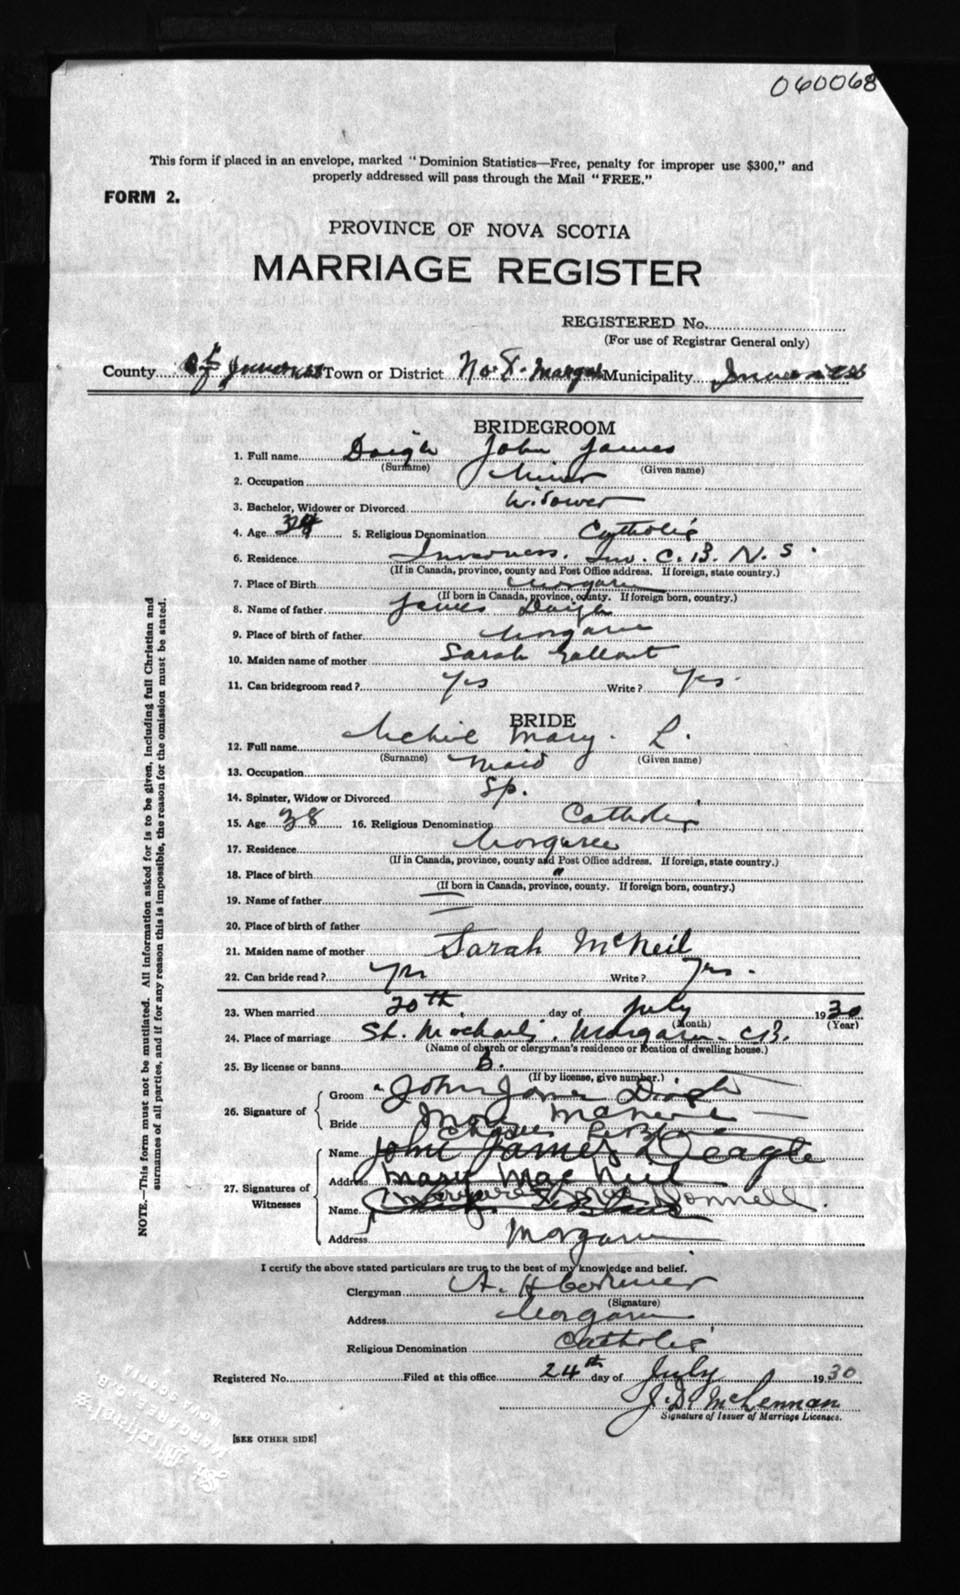 060068
This form if placed in an envelope, marked "Dominion Statistics—Free, penalty for improper use $300," and
properly addressed will pass through the Mail "FREE."
FORM 2.
PROVINCE OF NOVA SCOTIA
MARRIAGE REGISTER
REGISTERED No.
(For use of Registrar General only)
County of Inverness Town or District No. Municipality Inverness
BRIDEGROOM
1. Full name Daigle John James
(Surname) (Given name)
2. Occupation Miner
3. Bachelor, Widower or Divorced Widower
4. Age 5. Religious Denomination Catholic
6. Residence Inverness. Inv. C. B. N. S.
(If in Canada, province, county and Post Office address. If foreign, state country.)
7. Place of Birth Margaree
(If born in Canada, province, county. If foreign born, country.)
8. Name of father James Daigle
9. Place of birth of father Margaree
10. Maiden name of mother Sarah
11. Can bridegroom read? Yes Write? Yes.
BRIDE
12. Full name Mary. L.
(Surname) (Given name)
13. Occupation Maid
14. Spinster, Widow or Divorced Sp.
15. Age 38 16. Religious Denomination Catholic
17. Residence Margaree
(If in Canada, province, county and Post Office address. If foreign, state country.)
18. Place of birth "
(If born in Canada, province, county. If foreign born, country.)
19. Name of father —
20. Place of birth of father —
21. Maiden name of mother Sarah McNeil
22. Can bride read? Yes Write? Yes.
23. When married 20th day of July 1930
(Month) (Year)
24. Place of marriage St. Michael's, Margaree C.B.
(Name of church or clergyman's residence or location of dwelling house.)
25. By license or banns B.
(If by license, give number.)
26. Signature of Groom John James
Bride
27. Signatures of Witnesses
Name John James Deagle
Address Mary MacNeil
Name Donnell.
Address Margaree
I certify the above stated particulars are true to the best of my knowledge and belief.
Clergyman A. H. Cormier
(Signature)
Address Margaree
Religious Denomination Catholic
Registered No. Filed at this office 24th day of July 1930
J. D. McLennan
Signature of Issuer of Marriage Licenses.
[SEE OTHER SIDE]
NOTE.—This form must not be mutilated. All information asked for is to be given, including full Christian and
surnames of all parties, and if for any reason this is impossible, the reason for the omission must be stated.